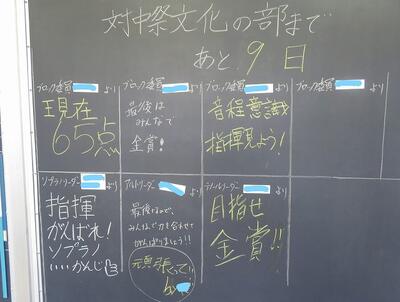 対中祭文化の部まで
あと9日
ブロック委員 より
現在
65点
ブロック委員 より
最後は
みんなで
金賞!
ブロック委員 より
音程意識
指揮見よう!
ブロック委員 より
ソプラノリーダー より
指揮
がんばれ!
ソプラノ
いいかんじ
アルトリーダー より
最後なので、
みんなで力を合わせて
がんばりましょう!!
頑張ってい
テノールリーダー より
目指せ
金賞!!